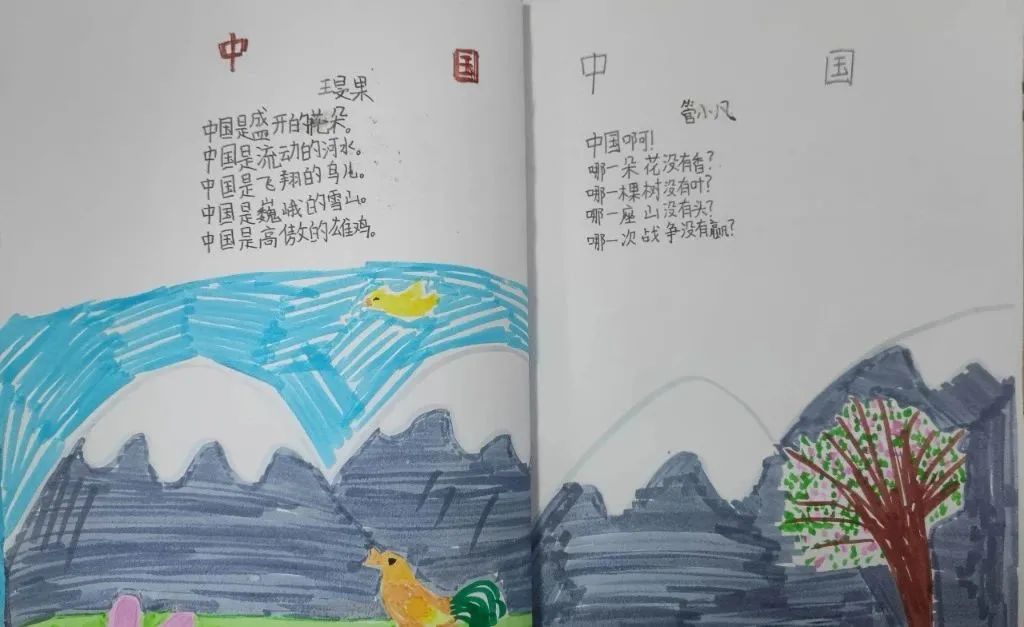 中 国
王旻果
中国是盛开的花朵。
中国是流动的河水。
中国是飞翔的鸟儿。
中国是巍峨的雪山。
中国是高傲的雄鸡。
中 国
管小凡
中国啊!
哪一朵花没有香?
哪一棵树没有叶?
哪一座山没有头?
哪一次战争没有赢?